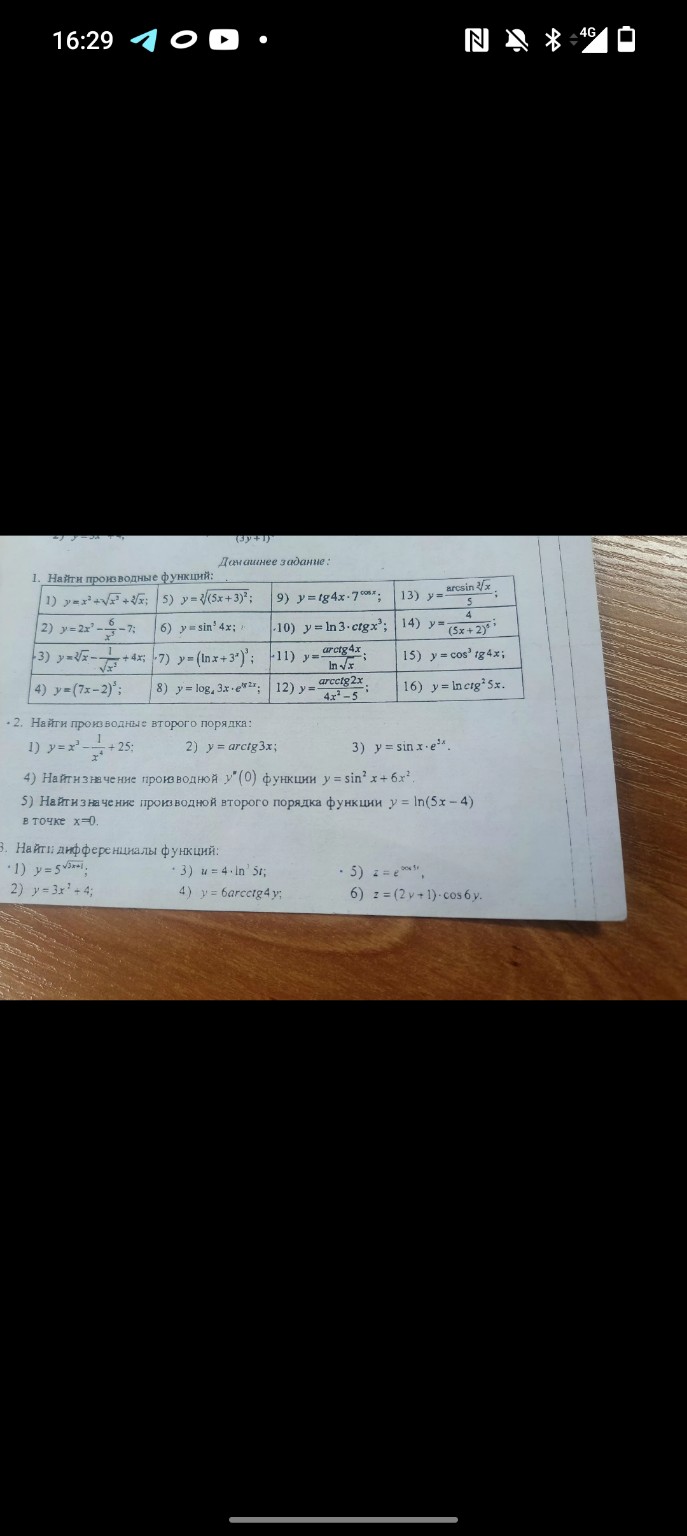 16:29
4G
Домашнее задание:
1. Найти производные функций:
1) y=x²+√x³+∛x; 5) y=∛(5x+3)²; 9) y=tg4x·7^cosx; 13) y=arcsin∛x/5;
2) y=2x⁷-6/x⁵-7; 6) y=sin³4x; 10) y=ln3·ctgx³; 14) y=4/(5x+2)⁶;
3) y=∛x-1/√x³+4x; 7) y=(lnx+3ˣ)³; 11) y=arctg4x/ln√x; 15) y=cos³tg4x;
4) y=(7x-2)³; 8) y=log₄3x·e^tg2x; 12) y=arcctg2x/4x²-5; 16) y=lnctg²5x.
2. Найти производные второго порядка:
1) y=x³-1/x⁴+25; 2) y=arctg3x; 3) y=sinx·e^5x.
4) Найти значение производной y″(0) функции y=sin²x+6x².
5) Найти значение производной второго порядка функции y=ln(5x-4)
в точке x=0.
3. Найти дифференциалы функций:
1) y=5^√3x+1; 3) u=4·ln³5t; 5) z=e^cos5t,
2) y=3x²+4; 4) y=6arcctg4y; 6) z=(2y+1)·cos6y.